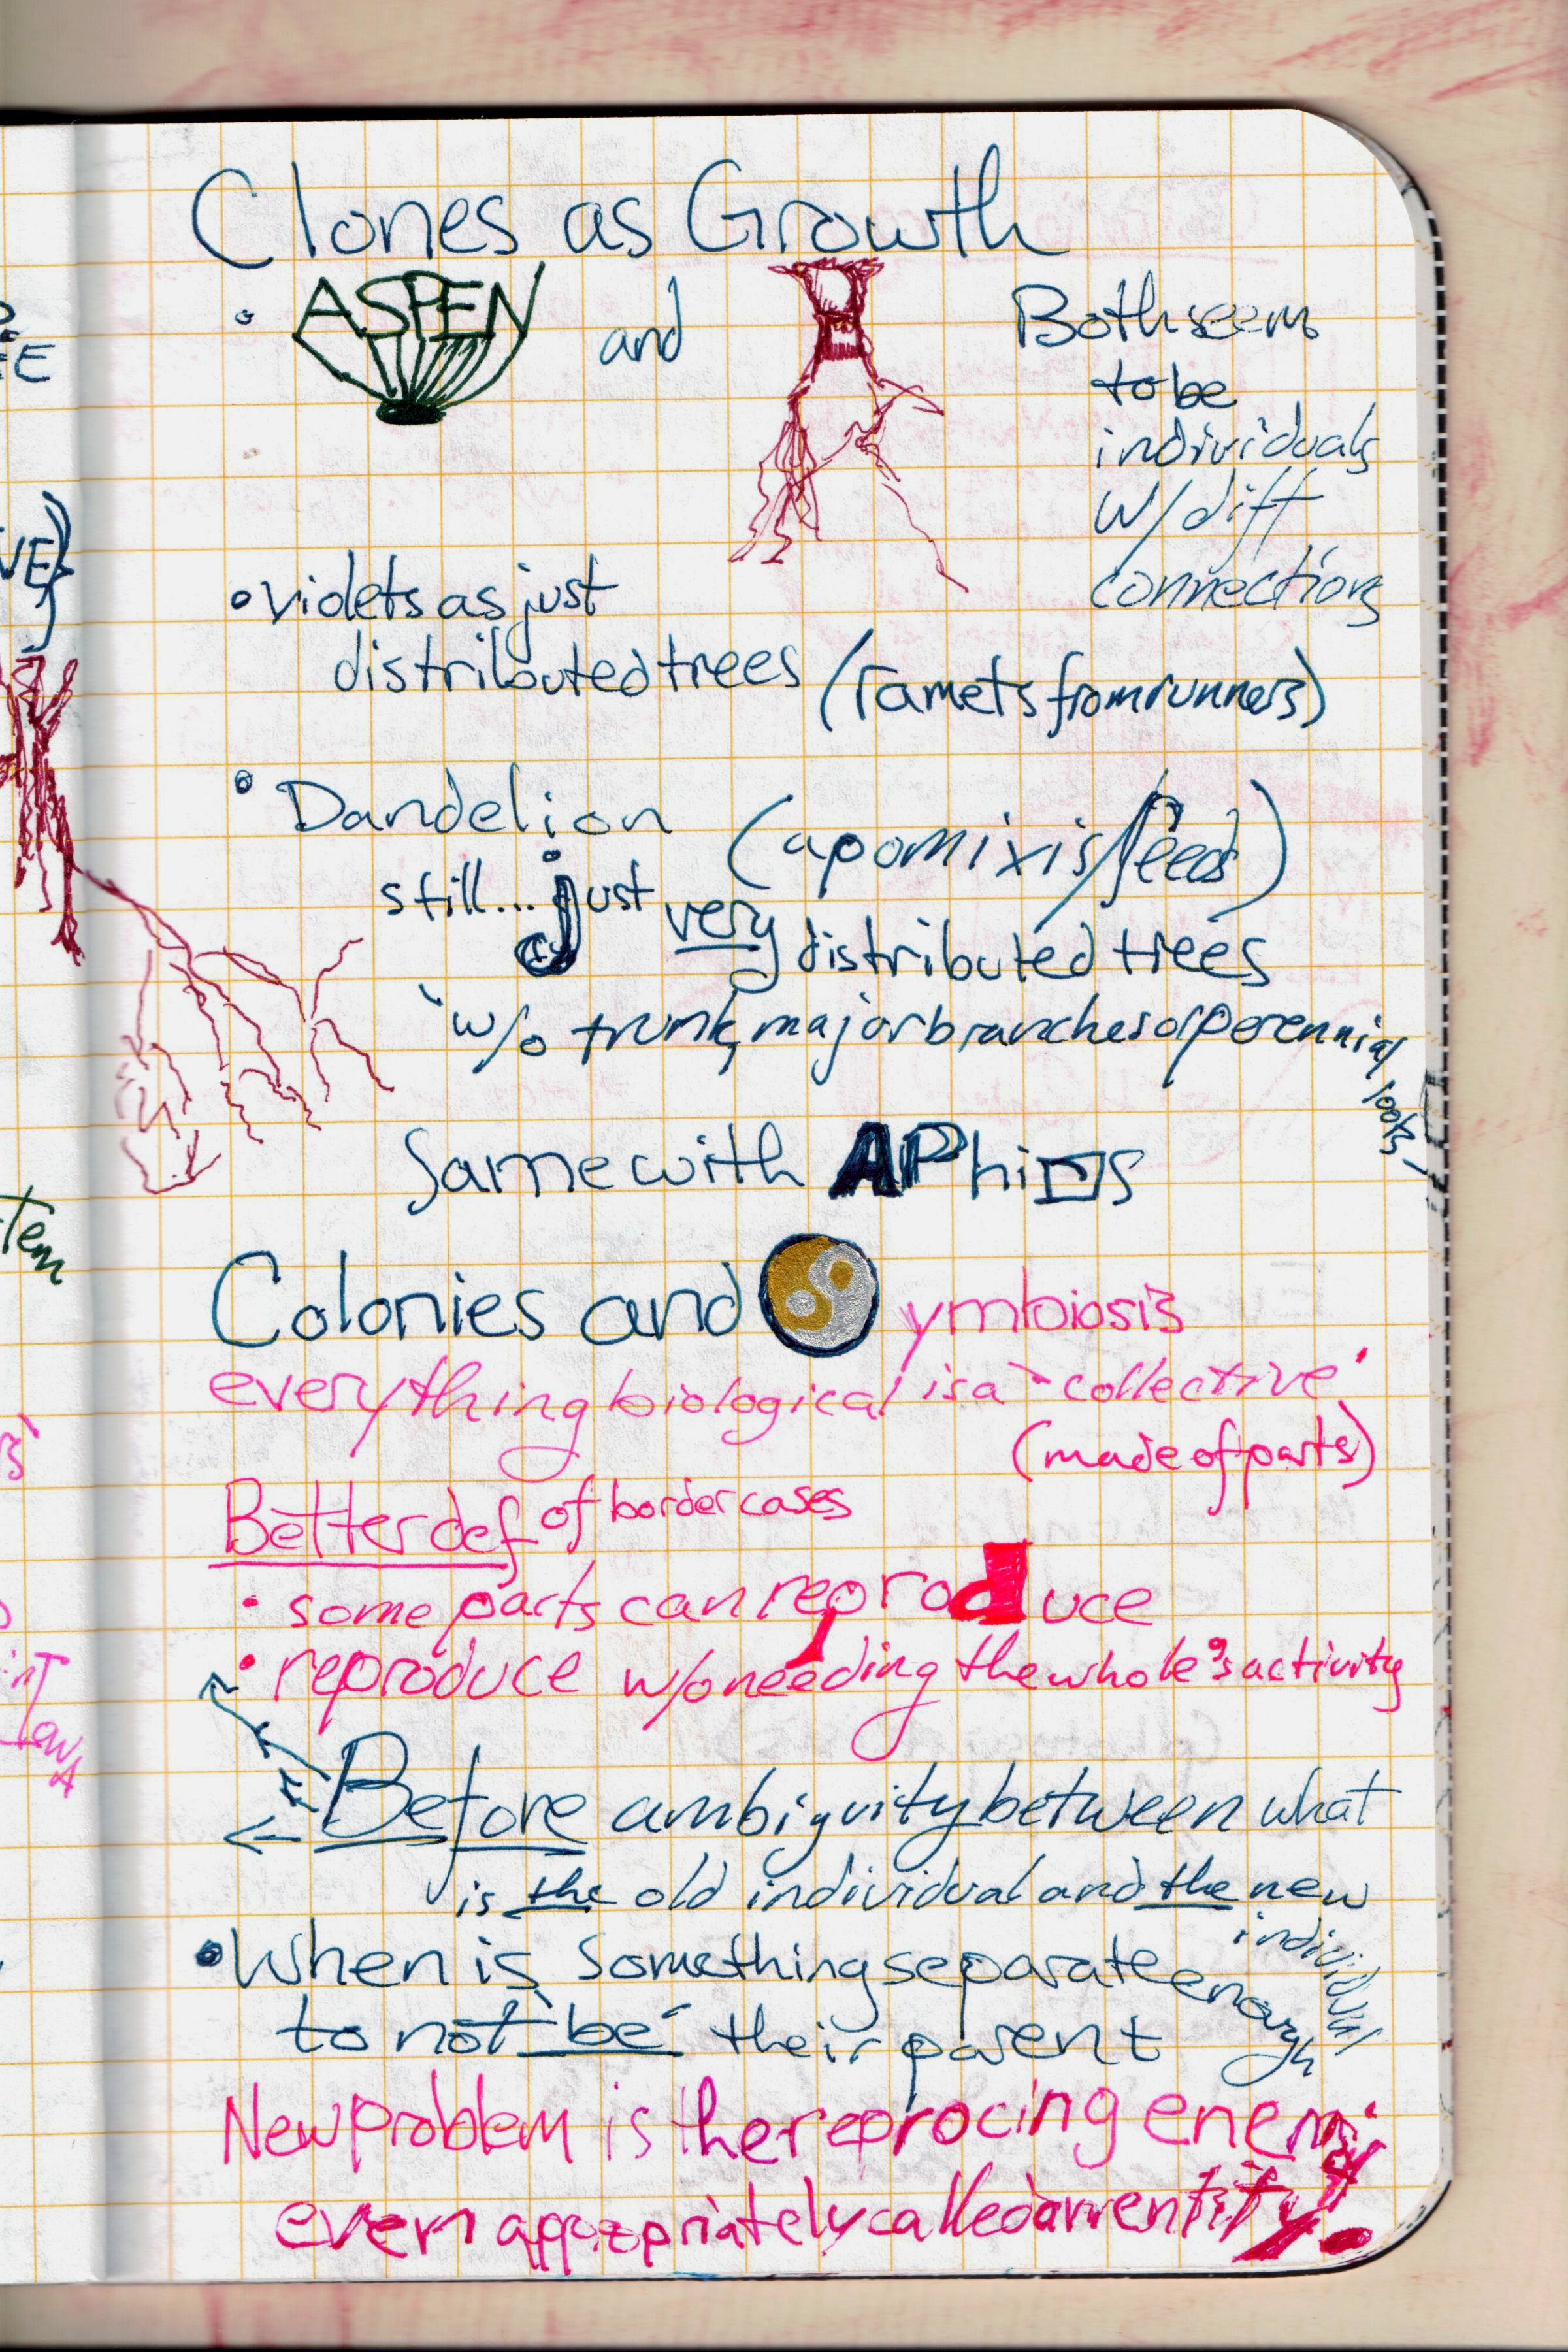 Clones as Growth
• ASPEN and
Both seem
to be
individuals
w/ diff
connections
• violets as just
distributed trees (ramets from runners)
• Dandelion (apomixis/seeds)
still... just very distributed trees
w/o trunk, major branches or perennial
roots
Same with APhiDs
Colonies and Symbiosis
everything biological is a "collective"
(made of parts)
Better def of border cases
• some parts can reproduce
• reproduce w/o needing the whole's activity
Before ambiguity between what
is the old individual and the new
individual
• When is something separate enough
to not "be" their parent
New problem is the reprocing
even appropriately called an entity?
EE
VE}
Tem